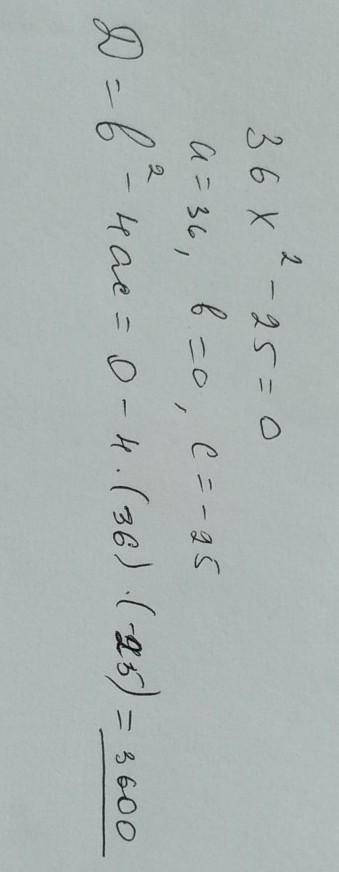 36x² - 25 = 0
a = 36, b = 0, c = -25
D = b² - 4ac = 0 - 4 · (36) · (-25) = 3600